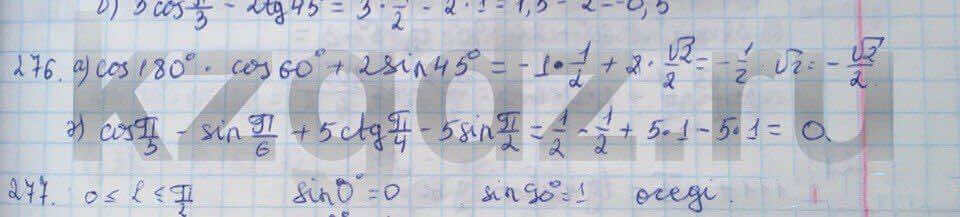 б) 3cos π/3 - 2tg45° = 3 · 1/2 - 2 · 1 = 1,5 - 2 = -0,5
276. а) cos180° · cos60° + 2sin45° = -1 · 1/2 + 2 · √2/2 = -1/2 · √2 = -√2/2
г) cos π/3 - sin π/6 + 5ctg π/4 - 5sin π/2 = 1/2 - 1/2 + 5·1 - 5·1 = 0
277. 0 ≤ L ≤ π/2 sin0° = 0 sin90° = 1 өседі.
kzgdz.ru